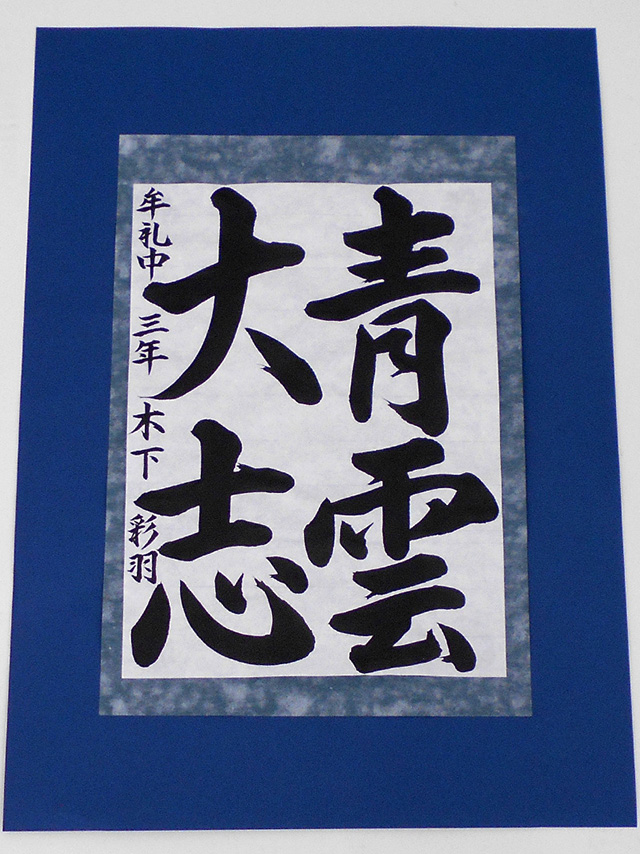 青雲
大志
牟礼中 三年 木下 彩羽